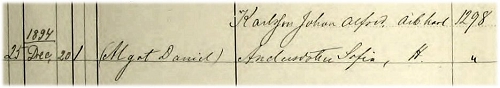 Karlsson Johan Alfred. arbkarl 1298
1894
25 Dec. 20 1 (Algot Daniel) Andersdotter Sofia, H. "